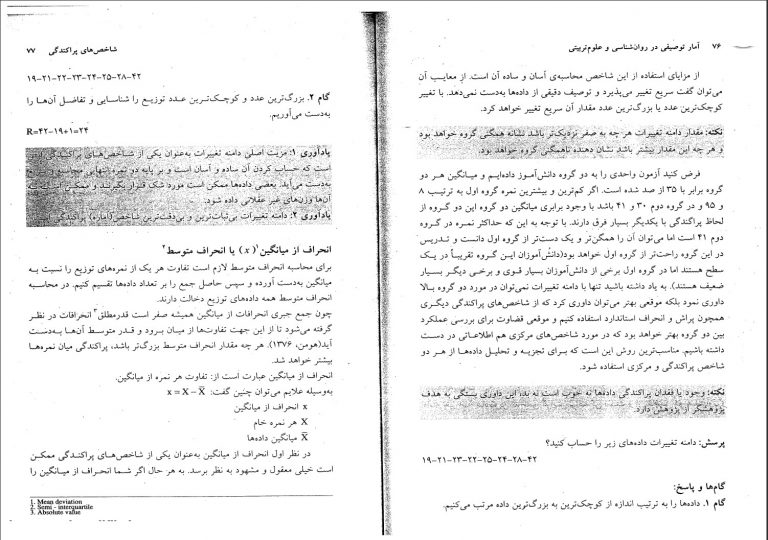 ۷۶ آمار توصیفی در روان‌شناسی و علوم‌تربیتی
از مزایای استفاده از این شاخص محاسبه‌ی آسان و ساده آن است. از معایب آن
می‌توان گفت سریع تغییر می‌پذیرد و توصیف دقیقی از داده‌ها به‌دست نمی‌دهد. با تغییر
کوچک‌ترین عدد یا بزرگ‌ترین عدد مقدار آن سریع تغییر خواهد کرد.
نکته: مقدار دامنه تغییرات هر چه به صفر نزدیک‌تر باشد نشانه همگنی گروه خواهد بود
و هر چه این مقدار بیشتر باشد نشان دهنده ناهمگنی گروه خواهد بود.
فرض کنید آزمون واحدی را به دو گروه دانش‌آموز داده‌ایم و میانگین هر دو
گروه برابر با ۳۵ از صد شده است. اگر کم‌ترین و بیشترین نمره گروه اول به ترتیب ۸
و ۹۵ و در گروه دوم ۳۰ و ۴۱ باشد با وجود برابری میانگین دو گروه این دو گروه از
لحاظ پراکندگی با یکدیگر بسیار فرق دارند. با توجه به این که حداکثر نمره در گروه
دوم ۴۱ است اما می‌توان آن را همگن‌تر و یک دست‌تر از گروه اول دانست و تدریس
در این گروه راحت‌تر از گروه اول خواهد بود(دانش‌آموزان این گروه تقریباً در یک
سطح هستند اما در گروه اول برخی از دانش‌آموزان بسیار قوی و برخی دیگر بسیار
ضعیف هستند). به یاد داشته باشید تنها با دامنه تغییرات نمی‌توان در مورد دو گروه بالا
داوری نمود بلکه موقعی بهتر می‌توان داوری کرد که از شاخص‌های پراکندگی دیگری
همچون پراش و انحراف استاندارد استفاده کنیم و موقعی قضاوت برای بررسی عملکرد
بین دو گروه بهتر خواهد بود که در مورد شاخص‌های مرکزی هم اطلاعاتی در دست
داشته باشیم. مناسب‌ترین روش این است که برای تجزیه و تحلیل داده‌ها از هر دو
شاخص پراکندگی و مرکزی استفاده شود.
نکته: وجود یا فقدان پراکندگی داده‌ها نه خوب است نه بد، این داوری بستگی به هدف
پژوهشگر از پژوهش دارد.
پرسش: دامنه تغییرات داده‌های زیر را حساب کنید؟
۱۹-۲۱-۲۳-۲۲-۲۵-۲۴-۲۸-۴۲
گام‌ها و پاسخ:
گام ۱. داده‌ها را به ترتیب اندازه از کوچک‌ترین به بزرگ‌ترین داده مرتب می‌کنیم.
شاخص‌های پراکندگی ۷۷
۱۹-۲۱-۲۲-۲۳-۲۴-۲۵-۲۸-۴۲
گام ۲. بزرگ‌ترین عدد و کوچک‌ترین عدد توزیع را شناسایی و تفاضل آن‌ها را
به‌دست می‌آوریم.
R=۴۲-۱۹+۱=۲۴
یادآوری ۱: مزیت اصلی دامنه تغییرات به‌عنوان یکی از شاخص‌های پراکندگی این
است که حساب کردن آن ساده و آسان است و بر پایه دو نمره انتهایی محاسبه و
به‌دست می‌آید. بعضی داده‌ها ممکن است مورد شک قرار بگیرند و ممکن است به
آن‌ها وزن‌های غیر عقلانی داده شود.
یادآوری ۲: دامنه تغییرات بی‌ثبات‌ترین و بی‌دقت‌ترین شاخص(آماره) پراکندگی
انحراف از میانگین۱( x ) یا انحراف متوسط۲
برای محاسبه انحراف متوسط لازم است تفاوت هر یک از نمره‌های توزیع را نسبت به
میانگین به‌دست آورده و سپس حاصل جمع را بر تعداد داده‌ها تقسیم کنیم. در محاسبه
انحراف متوسط همه داده‌های توزیع دخالت دارند.
چون جمع جبری انحرافات از میانگین همیشه صفر است قدرمطلق۳ انحرافات در نظر
گرفته می‌شود تا از این جهت تفاوت‌ها از میان برود و قدر متوسط آن‌ها به‌دست
آید(هومن، ۱۳۷۶). هر چه مقدار انحراف متوسط بزرگ‌تر باشد، پراکندگی میان نمره‌ها
بیشتر خواهد شد.
انحراف از میانگین عبارت است از: تفاوت هر نمره از میانگین.
به‌وسیله علایم می‌توان چنین گفت: x = X − X̅
x انحراف از میانگین
X هر نمره خام
X̅ میانگین داده‌ها
در نظر اول انحراف از میانگین به‌عنوان یکی از شاخص‌های پراکندگی ممکن
است خیلی معقول و مشهود به نظر برسد. به هر حال اگر شما انحراف از میانگین را
1. Mean deviation
2. Semi - interquartile
3. Absolute value